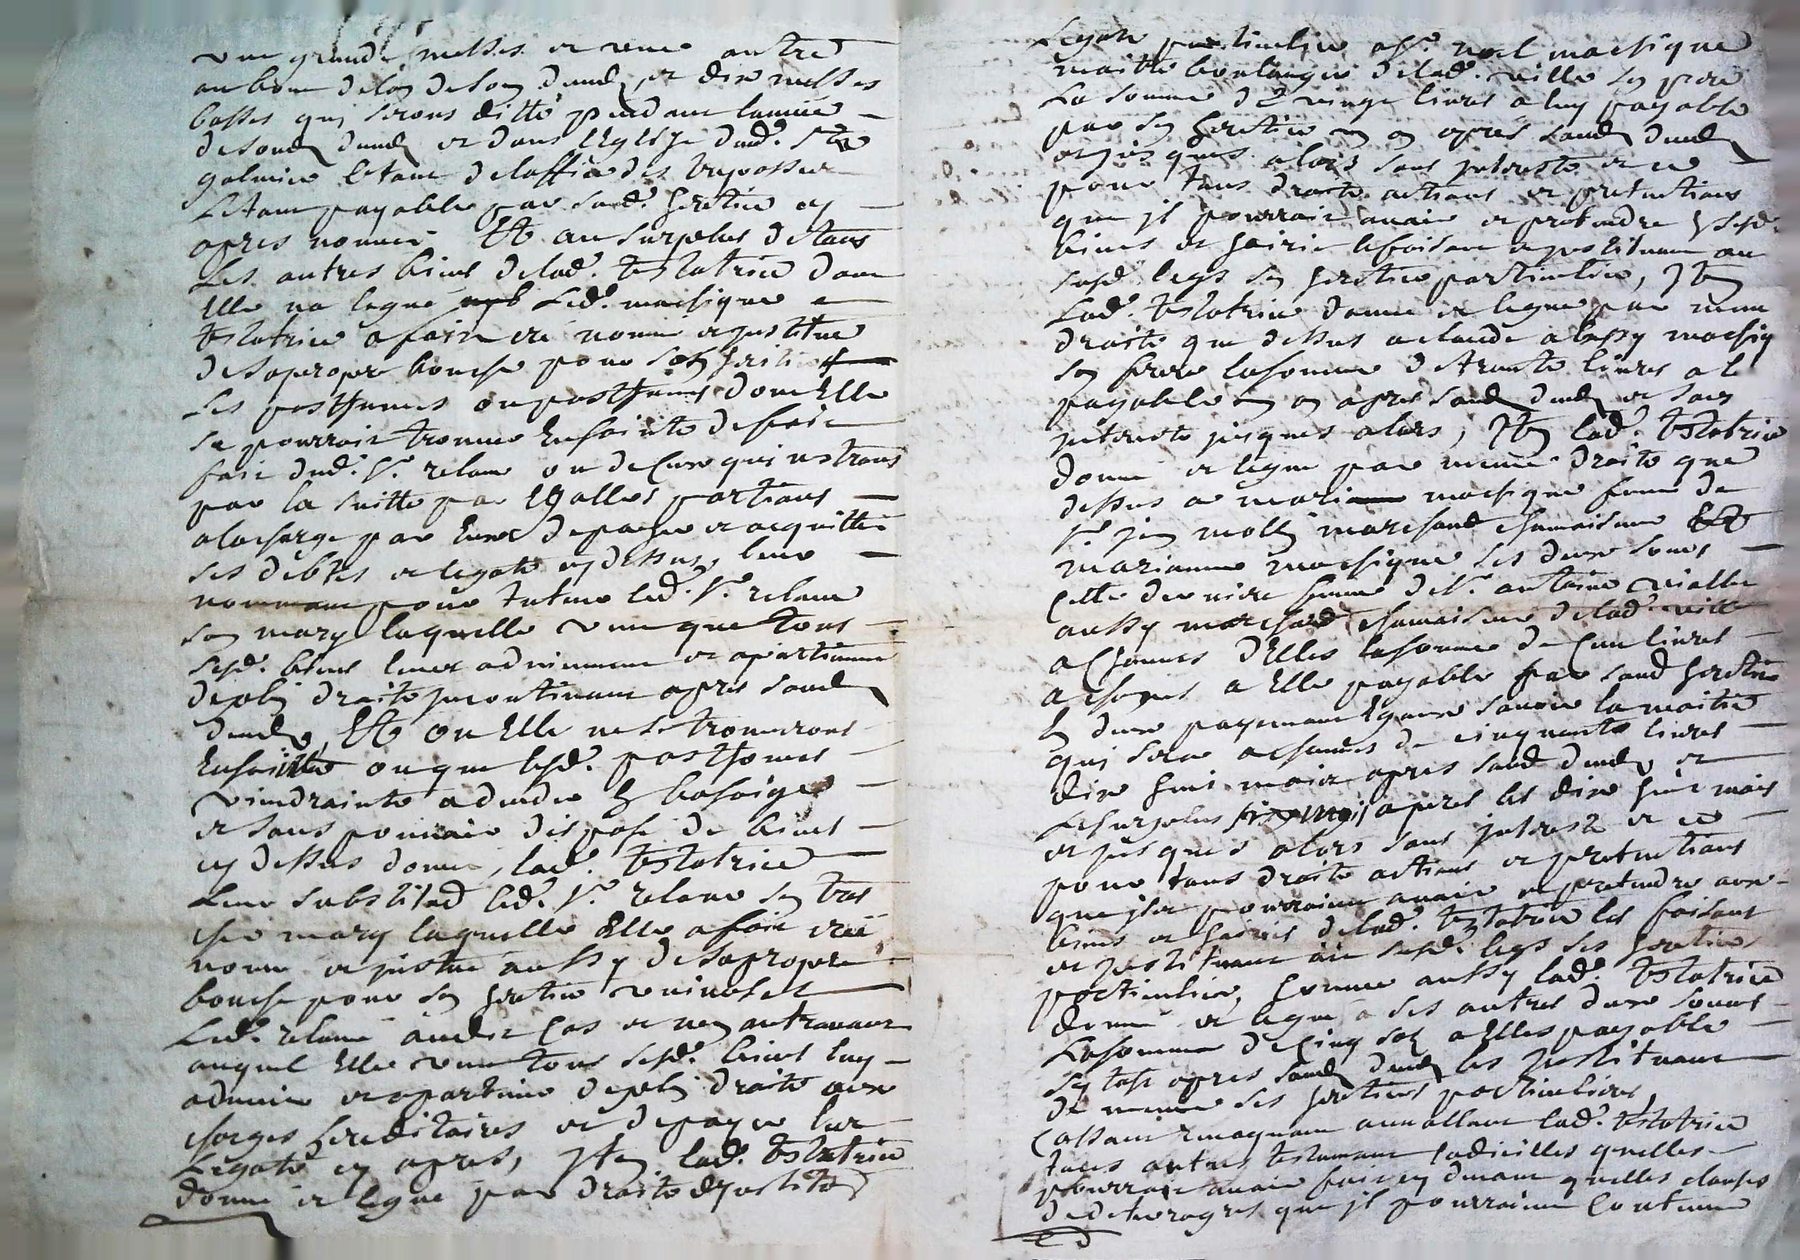 une grande messes et une autre
au bout de lan de son deced, et dix messes
basses qui seront ditte pendant lannée
de soud deced et dans l'Eglize dud. St
galmier Estant de laffia des trepassez
Lestout payable par sond. heretier cy
apres nommé Et au surplus de tous
Les autres biens de lad. testatrice dont
Elle na legué Lad. massique
testatrice a fait cré nommé et jnstitué
de sa propre bouche pour ses heritie
Les posthumes ou posthumes dont Elle
se pourrait trouver Ensainte de foit
fait dud. Sr. relave ou de Ceux qui nestrons
par la suitte par Egalles portions
a la charge par Eux de payer et acquitter
ses debtes et legats cy dessus, leur
nommant pour tuteur led. Sr. relave
son mary laquelle veut que tous
sesd. biens leur adviennent et apartienne
de plein droit jncontinant apres soud
deced, Et ou Elle ne se trouverons
Ensainte ou que lesd. posthumes
viendrainte a deceder En bas aige
et sans pouvoir dispose de biens
cy dessus donné, lad. testatrice
Leur substitud led. Sr. relave son tres
cher mary laquelle Elle a fait créé
nomé et jnstitue aussy de sa propre
bouche pour son heretier universel
Led. relave audit Cas et non autrement
auquel Elle veut tous sesd. biens luy
advenir et apartenir de plein droit aux
charges hereditaires et de payer les
Legats cy apres, Jtem lad. testatrice
donne et legue par droit d'jnstitu
Legats particulier a Sr. noel massique
maitre boulanger de lad. ville son pere
La somme de vingt livres a luy payable
par son heretier un an apres soud deced
et jusques alors sans jnterests et ce
pour tous droits actions et pretentions
que jl pourroit avoir et pretendre En sesd.
biens et hoirie le faisant et jnstituant au
susd. legs son heretier particulier, Jtem
Lad. testatrice donne et legue par meme
droits que dessus a claude alexy massiq
son frere la somme de trante livres a l
payable un an apres soud deced et sans
jnterests jusques alors, Jtem lad. testatrice
donne et legue par meme droits que
dessus a marie massique feme de
Sr. jean molli marchand chamoiseur Et a
marianne massique ses deux soeurs
Cette derniere femme de Sr. antoine vialle
aussy marchand chamoiseur de lad. ville
a Chacunes d'Elles la somme de Cent livres
a chacunes a Elle payable par soud heretier
En deux payement Egaux savoir la moitié
qui sera a chacunes de cinquante livres
dix huit mois apres soud deced, et
Le surplus six mois apres les dix huit mois
et jusques alors sans jnterests et ce
pour tous droits actions et pretentions
que jls pourroient avoir et pretendre aux
biens et hoiries de lad. testatrice les faisant
et jnstituant au susd. legs ses heretiers
particulier, Comme aussy lad. testatrice
donne et legue a ses autres deux soeurs
La somme de Cinq sols a Elles payable
si tost apres soud deced les jnstituant
de meme ses heretiers particulieres,
Cassant revoquant annullant lad. testatrice
touts autres testament codicilles quelles
pourroit avoir fait cy devant quelles clauses
de derogres que jl pourroient Contenir